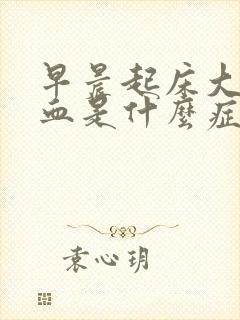 早晨起床大
血是什麼症
袁心玥